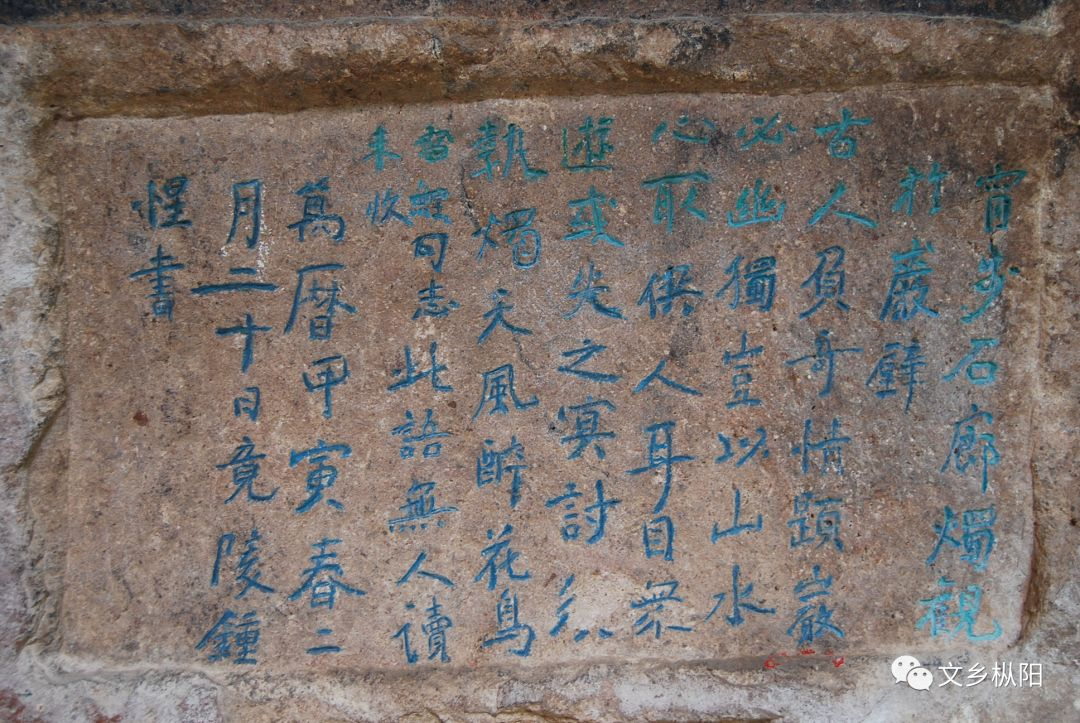 宵步石廊燭觀
於巖壁
古人負奇情題巖
必幽獨豈以山水
心取俱人耳目衆
遊或失之冥討
執燭天風醉花鳥
句志此語無人讀
未收
萬曆甲寅春二
月二十日竟陵鍾
惺書
文乡枞阳